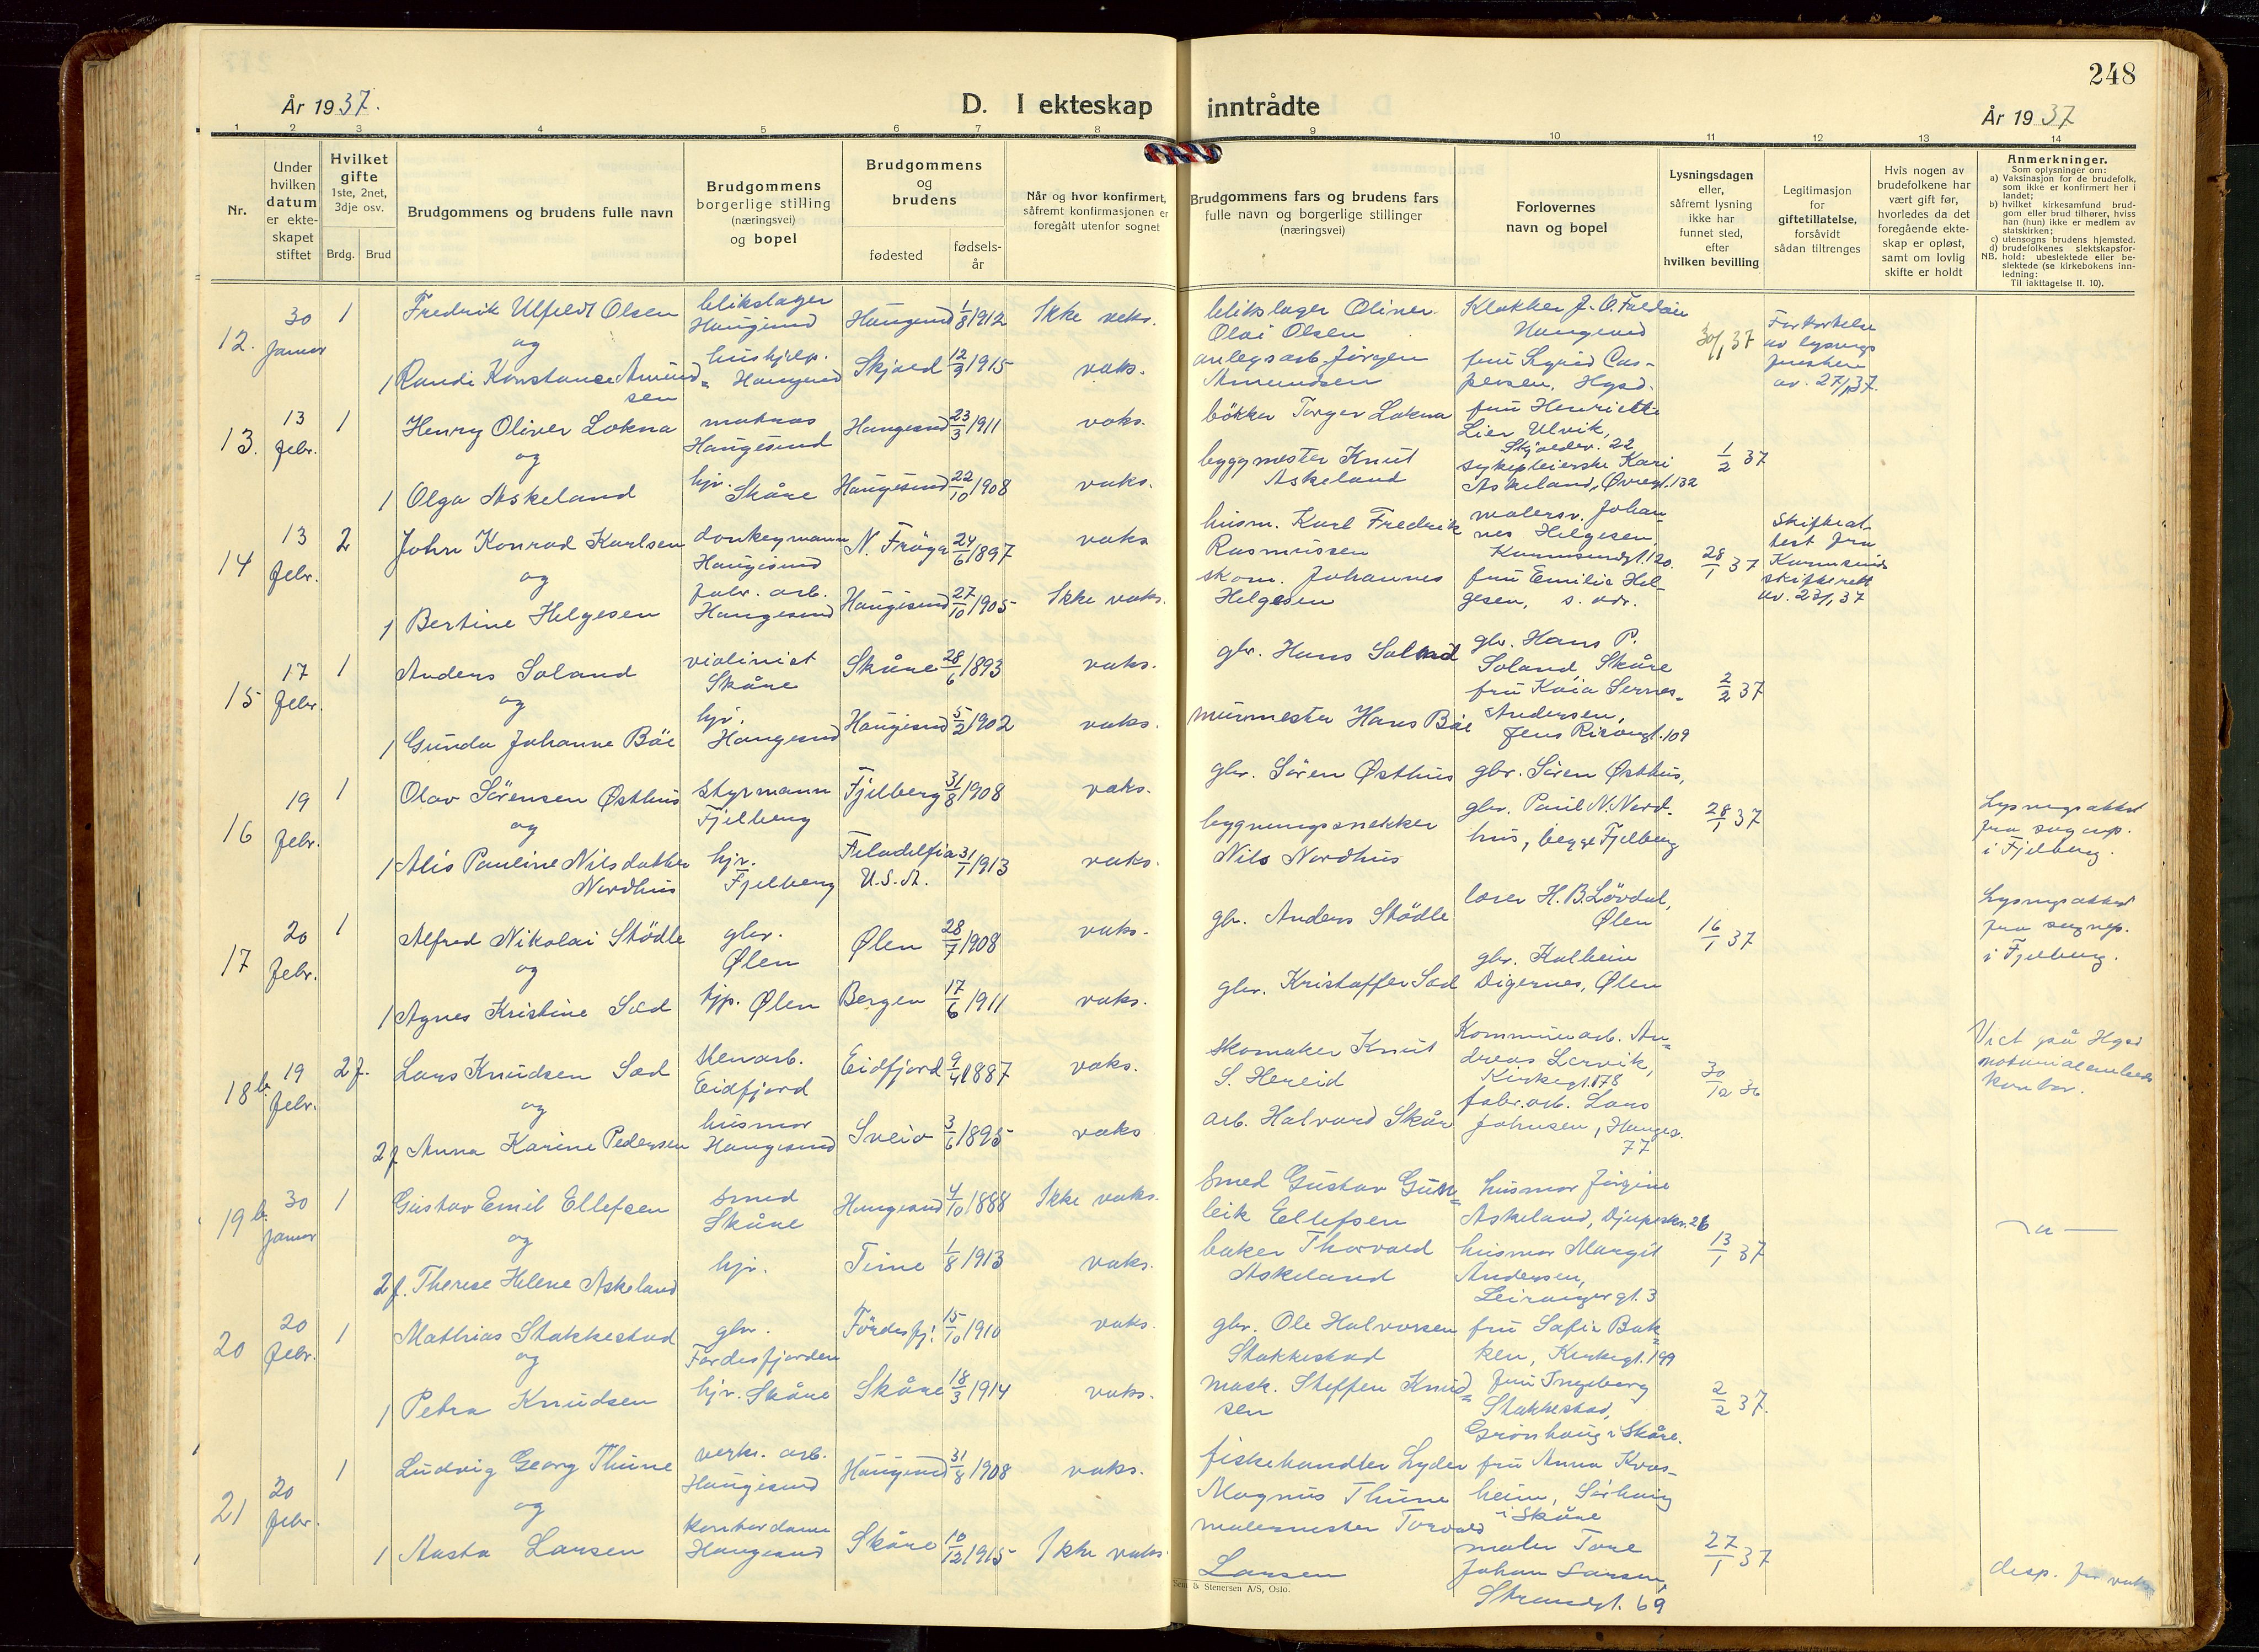 248
År 1937.
D. I ekteskap inntrådte
År 1937
1 2 3 4 5 6 7 8 9 10 11 12 13 14
Nr.
Under
hvilken
datum
er ekte-
skapet
stiftet
Hvilket
gifte
1ste, 2net,
3dje osv.
Brdg. Brud
Brudgommens og brudens fulle navn
Brudgommens
borgerlige stilling
(næringsvei)
og bopel
Brudgommens
og
brudens
fødested
fødsels-
år
Når og hvor konfirmert,
såfremt konfirmasjonen er
foregått utenfor sognet
Brudgommens fars og brudens fars
fulle navn og borgerlige stillinger
(næringsvei)
Forlovernes
navn og bopel
Lysningsdagen
eller,
såfremt lysning
ikke har
funnet sted,
efter
hvilken bevilling
Legitimasjon
for
giftetillatelse,
forsåvidt
sådan tiltrenges
Hvis nogen av
brudefolkene har
vært gift før,
hvorledes da det
foregående ekte-
skap er opløst,
samt om lovlig
skifte er holdt
Anmerkninger.
Som oplysning om:
a) Vaksinasjon for de brudefolk,
som ikke er konfirmert her i
landet;
b) hvilket kirkesamfund brud-
gom eller brud tilhører, hviss
han (hun) ikke er medlem av
statskirken;
c) utensogns brudens hjemsted.
d) brudefolkenes slektskapsfor-
NB. hold: ubeslektede eller be-
slektede (se kirkebokens inn-
ledning:
Til iakttagelse II. 10).
12. 30 Januar 1 Fredrik Ulfeldt Olsen
blikslager
Haugesund
Haugesund 1/8 1912 Ikke vaks.
blikslager Oliver
Olai Olsen
Klokker J. O.
Haugesund
30/1 37
av lysnings
av. 27/1 37.
og
1 Randi Konstanse Amund=
sen
hushjelp.
Haugesund
Skjold 12/3 1915 vaks.
anlegsarb. Jörgen
Amundsen
fru Sigrid Cas-
persen, Hgsd.
13. 13 febr. 1 Henry Oliver Lokna
matros
Haugesund
Haugesund 23/3 1911 vaks.
bökker Torger Lokna
fru Henriette
Lier Ulvik,
Skjoldev. 22
1/2 37
og
1 Olga Askeland
hjv. Skåre
Haugesund 22/10 1908 vaks.
byggmester Knut
Askeland
sykepleierske Kari
Askeland, Øvregt. 132
14 13 febr. 2 John Konrad Karlsen
donkeymann
Haugesund
N. Fröya 24/6 1897 vaks
husm. Karl Fredrik
Rasmussen
malersv. Johan-
nes Helgesen,
Karmsundgt. 120.
28/1 37
Skifteat-
test fra
Karmsund
skifterett
av. 23/1 37
og
1 Bertine Helgesen
fabr. arb.
Haugesund
Haugesund 27/10 1905 Ikke vaks.
skom. Johannes
Helgesen
fru Emilie Hel-
gesen, s. adr.
15 17 febr. 1 Anders Soland
violinist
Skåre
Skåre 28/6 1893 vaks.
gbr. Hans Soland
gbr. Hans P.
Soland, Skåre
2/2 37
og
1 Gunda Johanne Böe
hjv.
Haugesund
Haugesund 5/2 1902 vaks.
murmester Hans Böe
fru Kaia Sernes-
Andersen,
109
16 19 febr. 1 Olav Sörensen Østhus
styrmann
Fjelberg
Fjelberg 31/8 1908 vaks.
gbr. Sören Østhus
gbr. Sören Østhus,
28/1 37
Lysningsattest
fra sognep.
i Fjelberg.
og
1 Alis Pauline Nilsdatter
Nordhus
hjv.
Fjelberg
Filadelfia
U.S.A.
31/1 1913 vaks.
bygningssnekker
Nils Nordhus
gbr. Paul N. Nord-
hus, begge Fjelberg
17 20 febr. 1 Alfred Nikolai Stödle
gbr.
Ølen
Ølen 28/7 1908 vaks.
gbr. Anders Stödle
lærer H. B. Lövdal,
Ølen
16/1 37
Lysningsattest
fra sognep.
i Fjelberg.
og
1 Agnes Kristine Sæd
hjp. Ølen
Bergen 17/6 1911 vaks.
gbr. Kristoffer Sæd
gbr. Kolbein
Digernes, Ølen
18b. 19 febr. 2 f. Lars Knudsen Sæd
stenarb.
Eidfjord
Eidfjord 9/4 1887 vaks.
skomaker Knut
S. Hereid
Kommunearb. An-
dreas Lervik,
Kirkegt. 178
30/12 36
Viet på Hgsd
notarialembeds
kontor.
og
2 f Anna Karine Pedersen
husmor
Haugesund
Sveio 3/6 1895 vaks
arb. Halvard Skåre
fabr. arb. Lars
Johnsen, Hauges.
77
19 b. 30 Januar 1 Gustav Emil Ellefsen
smed
Skåre
Haugesund 4/10 1888 Ikke vaks.
Smed Gustav Gun=
leik Ellefsen
husmor Jörgine
Askeland, Djupeskr. 26
13/1 37
— " —
og
2 f. Therese Helene Askeland
hjv.
Time 1/8 1913 vaks.
baker Thorvald
Askeland
husmor Margit
Andersen,
Leirangergt. 3
20 20 febr. 1 Mathias Stakkestad
gbr.
Fördesfjorden
Fördesfj. 15/10 1910 vaks.
gbr. Ole Halvorsen
Stakkestad
fru Sofie Bak=
ken, Kirkegt. 199
2/2 37.
og
1 Petra Knudsen
hjv. Skåre
Skåre 18/3 1914 vaks.
mask. Steffen Knud=
sen
fru Ingeborg
Stakkestad,
Grönhaug i Skåre.
21 20 febr. 1 Ludvig Georg Thune
verks. arb.
Haugesund
Haugesund 31/8 1908 vaks.
fiskehandler Lyder
Magnus Thune
fru Anna Kvas-
heim, Sörhaug
i Skåre
27/1 37
og
1 Aasta Larsen
kontordame
Haugesund
Skåre 10/12 1915 Ikke vaks
malermester Torvald
Larsen
maler Tore
Johan Larsen,
Strandgt. 69
desp. for vaks.
& Stenersen A/S, Oslo.